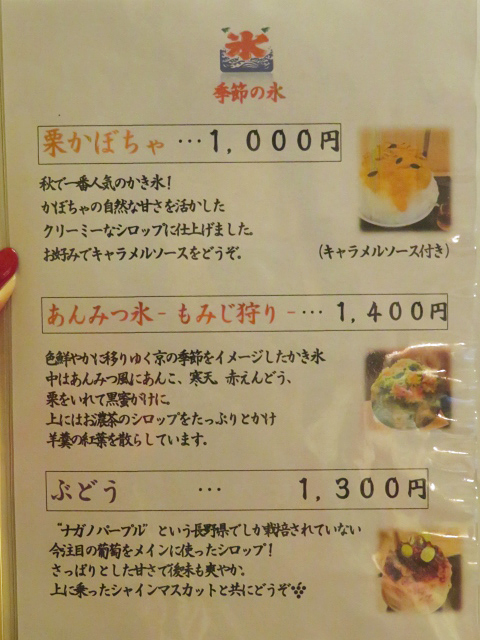 氷
季節の氷
栗かぼちゃ …1,000円
秋で一番人気のかき氷!
かぼちゃの自然な甘さを活かした
クリーミーなシロップに仕上げました。
お好みでキャラメルソースをどうぞ。
(キャラメルソース付き)
あんみつ氷-もみじ狩り-… 1,400円
色鮮やかに移りゆく京の季節をイメージしたかき氷
中はあんみつ風にあんこ、寒天。赤えんどう、
栗をいれて黒蜜がけに。
上にはお濃茶のシロップをたっぷりとかけ
羊羹の紅葉を散らしています。
ぶどう … 1,300円
"ナガノパープル" という長野県でしか栽培されていない
今注目の葡萄をメインに使ったシロップ!
さっぱりとした甘さで後味も爽やか。
上に乗ったシャインマスカットと共にどうぞ